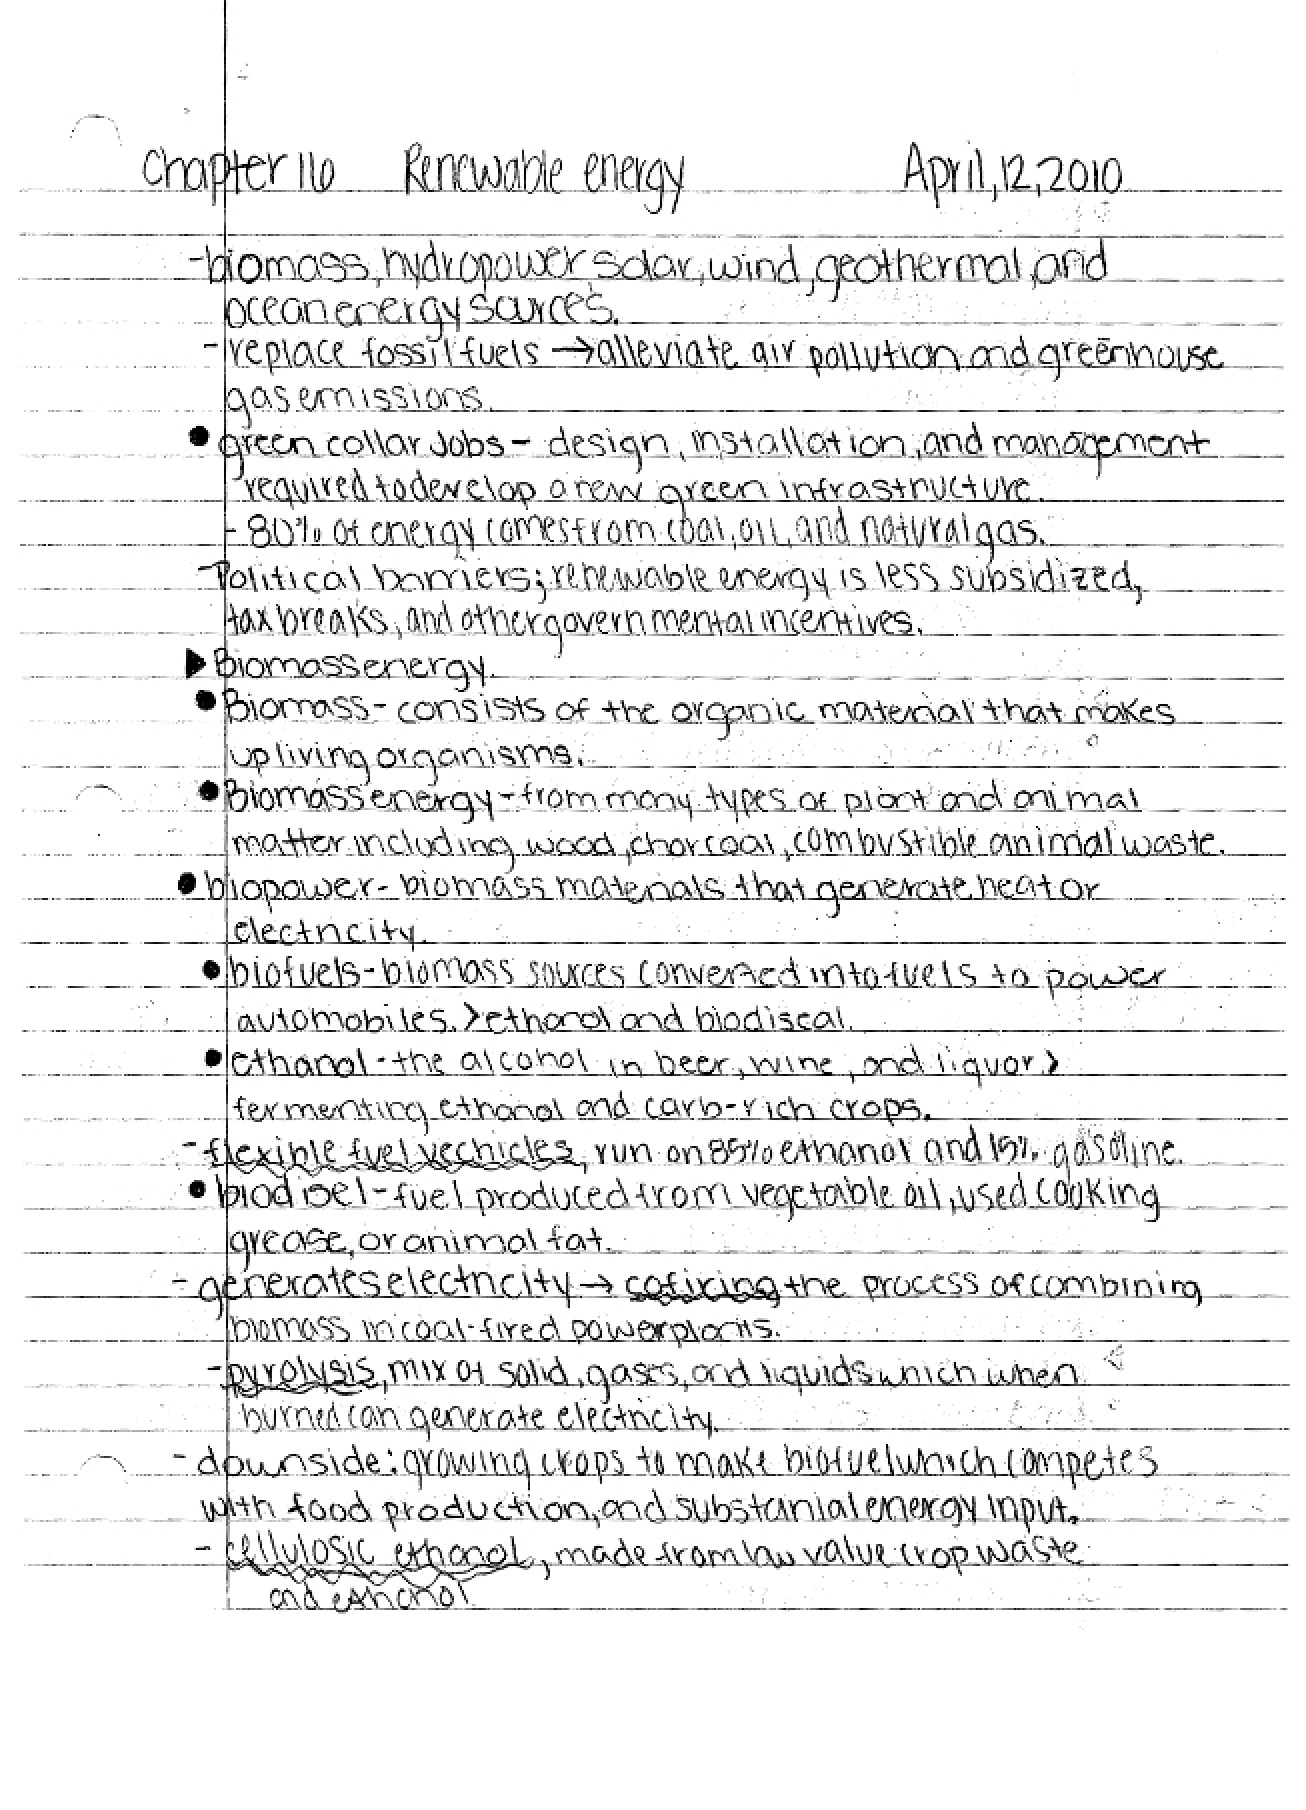 Chapter 16 Renewable energy April, 12, 2010
-biomass, hydropower, solar, wind, geothermal, and
ocean energy sources.
- replace fossil fuels → alleviate air pollution and greenhouse
gas emissions.
● green collar jobs - design, installation, and management
required to develop a new green infrastructure.
- 80% of energy comes from coal, oil, and natural gas.
Political barriers; renewable energy is less subsidized,
tax breaks, and other governmental incentives.
▶ Biomass energy.
● Biomass - consists of the organic material that makes
up living organisms.
● Biomass energy - from many types of plant and animal
matter including wood, charcoal, combustible animal waste.
● biopower - biomass materials that generate heat or
electricity.
● biofuels - biomass sources converted into fuels to power
automobiles. > ethanol and biodiseal.
● ethanol - the alcohol in beer, wine, and liquor >
fermenting ethanol and carb-rich crops.
- flexible fuel vechicles, run on 85% ethanol and 15% gasoline.
● biodisel - fuel produced from vegetable oil, used cooking
grease, or animal fat.
- generates electricity → cofiring the process of combining
biomass in coal-fired powerplants.
- pyrolysis, mix of solid, gases, and liquids which when
burned can generate electricity.
- downside: growing crops to make biofuel which competes
with food production, and substanial energy input.
- cellulosic ethanol, made from low value crop waste
and ethanol